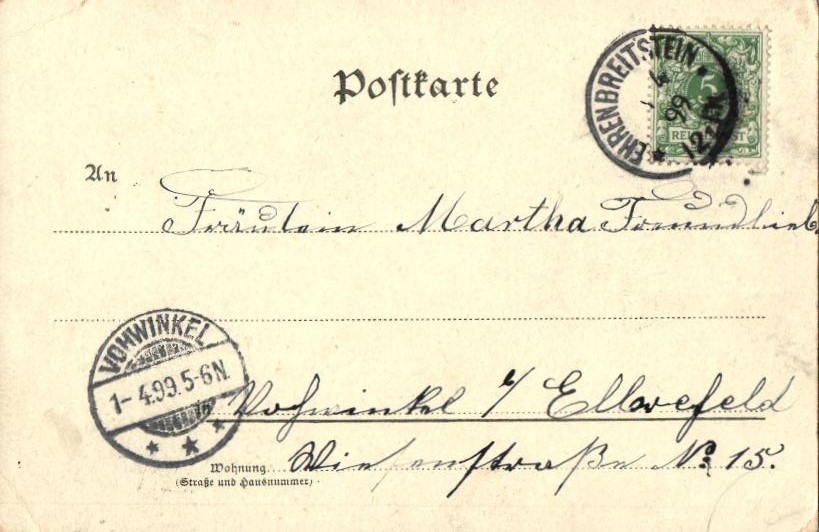 Postkarte
EHRENBREITSTEIN
4 99
5
REICHSPOST
An
Fräulein Martha Freundlieb
VOHWINKEL
1-4.99.5-6N.
Vohwinkel b/ Elberfeld
Wohnung
(Straße und Hausnummer)
Wiesenstraße No 15.